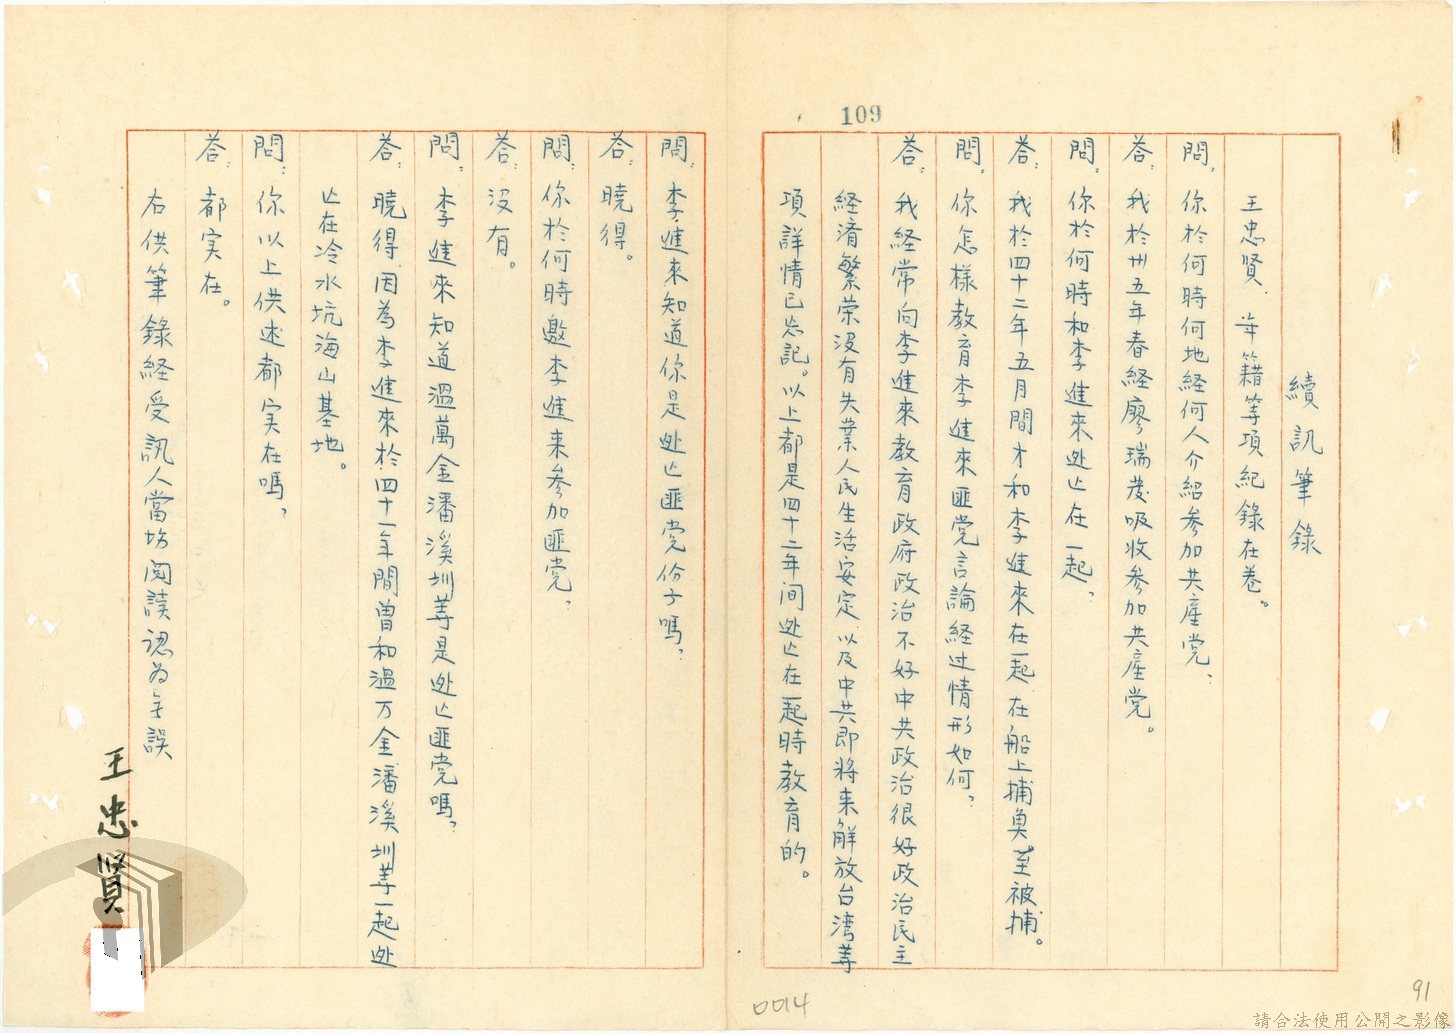 109
續訊筆錄
王忠贤 年籍等項紀錄在卷。
問：你於何時何地経何人介紹参加共產党？
荅：我於卅五年春経廖瑞发吸收参加共產党。
問：你於何時和李進來处亡在一起？
荅：我於四十二年五月間才和李進來在一起在船上捕魚至被捕。
問：你怎樣教育李進來匪党言論経过情形如何？
荅：我経常向李進來教育政府政治不好中共政治很好政治民主
経濟繁荣没有失業人民生活安定以及中共即將来解放台湾等
項詳情已忘記。以上都是四十二年间处亡在一起時教育的。
問：李進來知道你是处亡匪党份子嗎？
荅：曉得。
問：你於何時邀李進来参加匪党？
荅：没有。
問：李進來知道温萬金潘溪圳等是处亡匪党嗎？
荅：曉得因為李進來於四十一年間曾和温万金潘溪圳等一起处
亡在冷水坑海山基地。
問：你以上供述都实在嗎？
荅：都实在。
右供筆錄経受訊人當场阅讀認为无誤
王忠賢
0014
91
請合法使用公開之影像